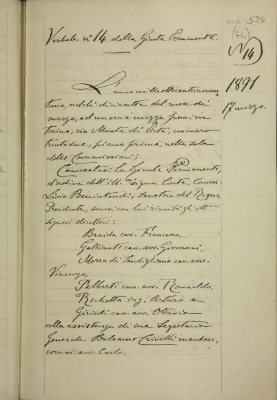 524
Verbale n. 14 della Giunta Permanente.
(N. 14)
1891
17 marzo.
L'anno milleottocentonovan-
tuno, addì diciasette del mese di
marzo, ad ore una e mezza pom. in
Torino, via Monte di Pietà, numero
trentadue, piano primo, nella sala
delle Commissioni;
Convocatasi la Giunta Permanente,
d'ordine dell'ill. Signor Conte Comm.
Livio Benintendi, Senatore del Regno,
Presidente, sonosi con lui riuniti gli ill.mi
Signori direttori:
Braida cav. Francesco,
Gallinati cav. avv. Giovanni,
Morra di Lavriano cav. avv.
Vincenzo,
Palberti cav. avv. Romualdo,
Richetta ing. Arturo e
Giriodi cav. avv. Ottavio
colla assistenza di me Segretario
Generale Balsamo Crivelli marchese,
comm. avv. Carlo.